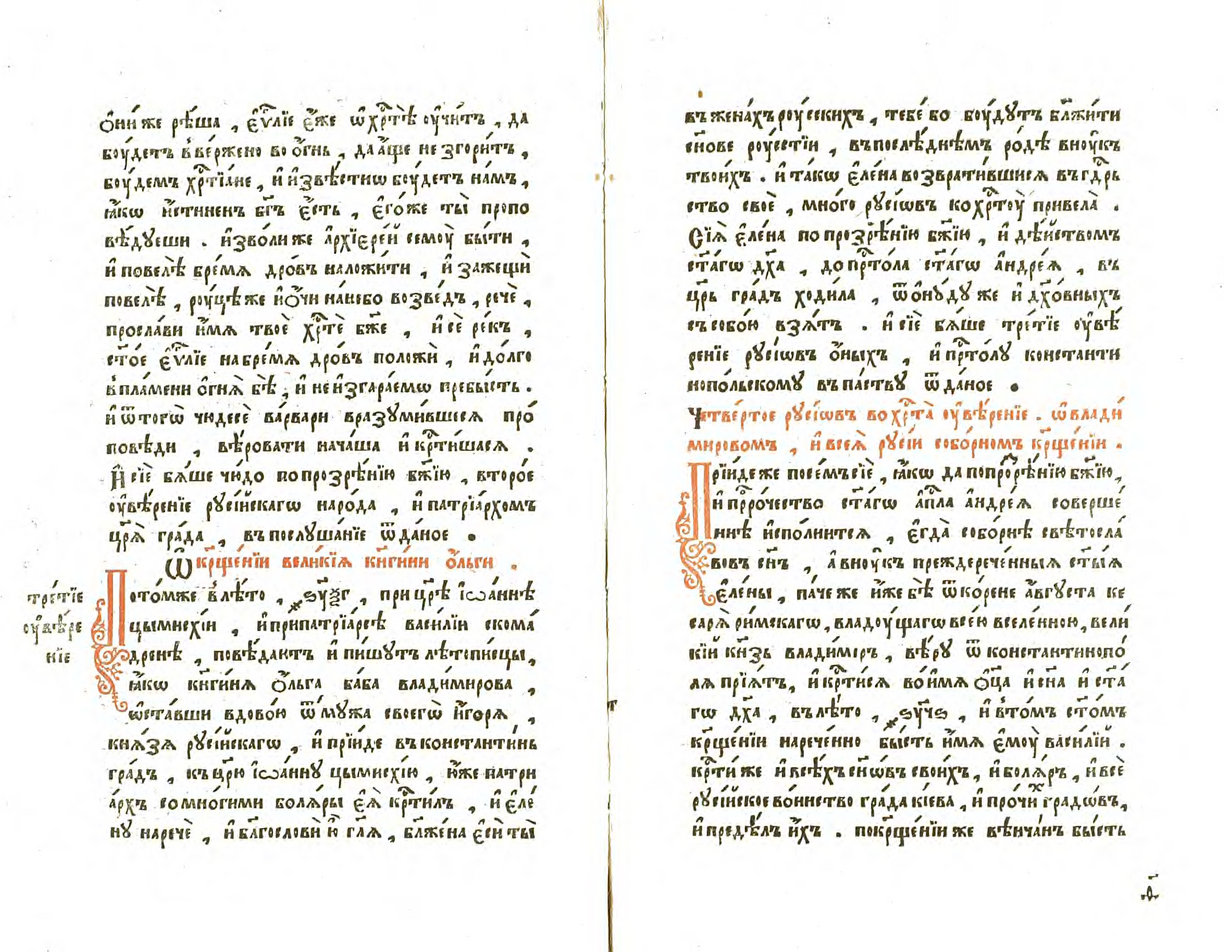 Ѻни́ же рѣ́ша , є҆ѵⷢ҇лїе є҆́же ѡ҆ хрⷭ҇тѣ̀ оу҆чи́тъ , да
боу́детъ в̾ве́ржено во ѻ҆́гнь , да а҆́ще не згори́тъ ,
боу́демъ хрⷭ҇тїа́не , и҆ и҆звѣ́стнѡ боу́детъ на́мъ ,
ꙗ҆́кѡ и҆́стиненъ бг҃ъ є҆́сть , є҆го́же ты̀ пропо
вѣ́дуеши . и҆зво́ли же а҆рхїєре́й семоу̀ бы́ти ,
и҆ повелѣ̀ бре́мѧ дро́въ наложи́ти , и҆ зажещѝ
повелѣ̀ , роу́цѣ же и҆ ѻ҆́чи на́небо возве́дъ , речѐ ,
просла́ви и҆́мѧ твоѐ хрⷭ҇тѐ бж҃е , и҆ сѐ ре́къ ,
ст҃о́е є҆ѵⷢ҇лїе на бре́мѧ дро́въ положѝ , и҆ до́лго
в̾ пла́мени ѻ҆́гнѧ бѣ̀ , и҆ не и҆згара́емѡ пребы́сть .
и҆ ѿ того̀ чюдесѐ ва́рвари вразуми́вшесѧ про́
повѣди , вѣ́ровати нача́ша и҆ крⷭ҇ти́шасѧ .
И҆ сїѐ бѧ́ше чю́до по прозрѣ́нїю бж҃їю , второ́е
оу҆вѣ́ренїе русі́йскагѡ наро́да , и҆ патрїа́рхомъ
цр҃ѧ̀ гра́да , въ послуша́нїе ѿда́ное .
Ѡ҆ крщ҃е́нїи вели́кїѧ кнг҃и́ни ѻ҆́льги .
трéтїе
оу҆вѣ́ре
нїе
Пото́мже в̾ лѣ́то , ҂ѕ҃уѯ҃г , при цр҃ѣ̀ і҆ѡа́ннѣ
цымисхі́и , и҆ при патрїа́рсѣ васи́лїи скома́
дренѣ , повѣ́даютъ и҆ пи́шутъ лѣтопи́сцы ,
ꙗ҆́кѡ кнг҃и́нѧ ѻ҆́льга ба́ба влади́мирова ,
ѡ҆ста́вши вдово́ю ѿ мꙋ́жа своегѡ̀ и҆́горѧ ,
кнѧ́зѧ русі́йскагѡ , и҆ прїи́де въ константі́нь
гра́дъ , къ цр҃ю і҆ѡа́ннꙋ цымисхі́ю , ю҆́же патри
а́рхъ со мно́гими болѧ́ры є҆ѧ̀ крⷭ҇ти́лъ , и҆ є҆ле́
нꙋ наречѐ , и҆ благослови́ ю҆̀ гл҃ѧ , бл҃же́на є҆сѝ ты̀
въ жена́хъ роу́сскихъ , тебе́ бо боу́дꙋтъ бл҃жи́ти
сн҃ове роу́стїи , въ послѣ́днѣмъ ро́дѣ вноу́къ
твои́хъ . и҆ та́кѡ є҆ле́на возврати́вшисѧ въ гдⷭ҇рь
ство своѐ , мно́го рꙋ́сїѡвъ ко хрⷭ҇тоу̀ привела̀ .
Сїѧ̀ є҆ле́на по прозрѣ́нїю бж҃їю , и҆ дѣ́йствомъ
ст҃а́гѡ дх҃а , до прⷭ҇то́ла ст҃а́гѡ а҆ндре́ѧ , въ
цр҃ь гра́дъ ходи́ла , ѿѻнꙋ́дꙋ же и҆ дх҃о́вныхъ
съ собо́ю взѧ́тъ . и҆ сїѐ бѧ́ше тре́тїе оу҆вѣ́
ренїе рꙋ́сїѡвъ ѻ҆́ныхъ , и҆ прⷭ҇то́лꙋ константи
нопо́льскомꙋ въ па́ствꙋ ѿда́ное .
Четве́ртое рꙋ́сїѡвъ во хрⷭ҇та̀ оу҆вѣ́ренїе . ѡ҆ влади́
мировомъ , и҆ всеѧ̀ рꙋсі́и собо́рномъ крщ҃е́нїи .
Прїи́де же посе́мъ сїѐ , ꙗ҆́кѡ да по прозрѣ́нїю бж҃їю ,
и҆ прⷪ҇ро́чество ст҃а́гѡ а҆пⷭ҇ла а҆ндре́ѧ соверше́
ннѣ и҆спо́лнитсѧ , є҆гда̀ собо́рнѣ свѣтосла́
вовъ сн҃ъ , а҆ вноу́къ преждерече́нныѧ ст҃ы́ѧ
є҆ле́ны , па́че же и҆́же бѣ̀ ѿ ко́рене а҆́вгуста ке́
сарѧ ри́мскагѡ , владоу́щагѡ все́ю вселе́нною , вели́
кїй кн҃зь влади́миръ , вѣ́рꙋ ѿ константинопо́
лѧ прїѧ́тъ , и҆ крⷭ҇ти́сѧ во и҆́мѧ ѻ҆ц҃а и҆ сн҃а и҆ ст҃а́
гѡ дх҃а , въ лѣ́то , ҂ѕ҃уч҃ѕ , и҆ в̾ то́мъ ст҃о́мъ
крщ҃е́нїи нарече́нно бы́сть и҆́мѧ є҆моу̀ васи́лїй .
крⷭ҇ти́ же и҆ всѣ́хъ сн҃ѡ́въ свои́хъ , и҆ болѧ́ръ , и҆ всѐ
рꙋсі́йское во́инство гра́да кі́ева , и҆ про́чихъ градѡ́въ ,
и҆ предѣ́лъ и҆́хъ . по крщ҃е́нїи же вѣнча́нъ бы́сть